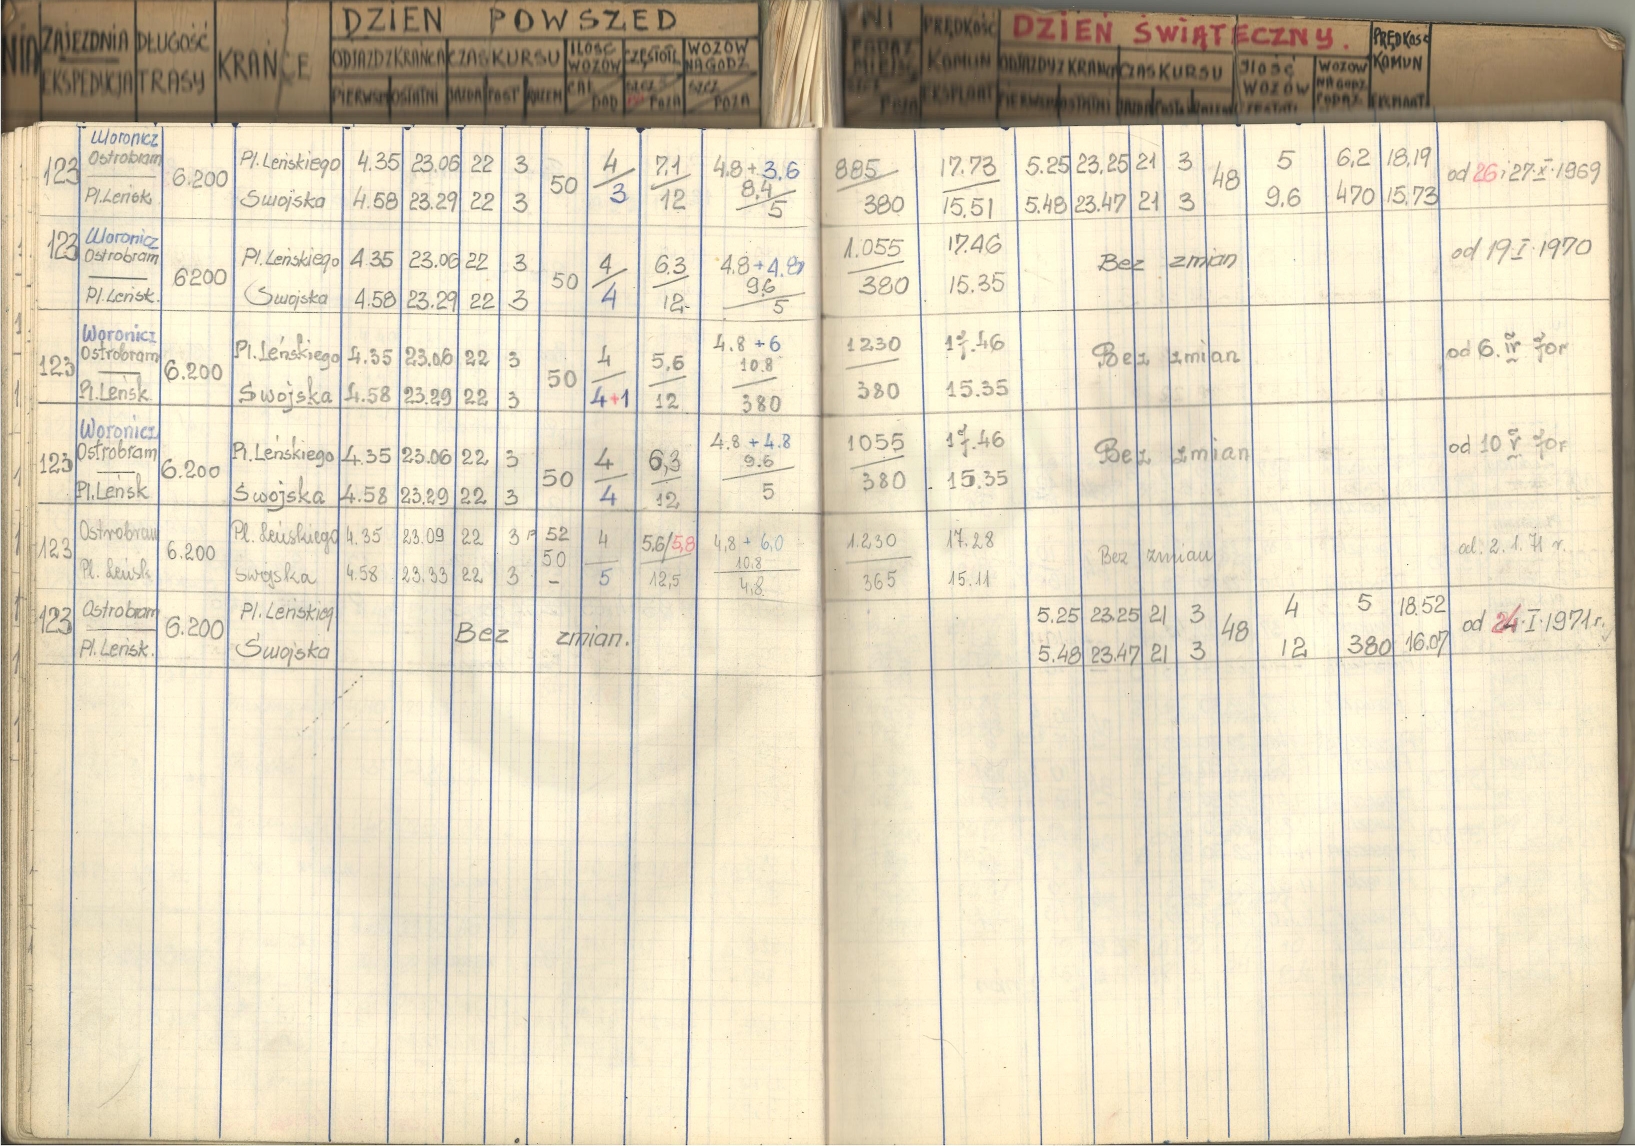 DZIEŃ POWSZED NI DZIEŃ ŚWIĄTECZNY.
NIA ZAJEZDNIA DŁUGOŚĆ KRAŃCE ODJAZD Z KRAŃCA CZAS KURSU ILOŚĆ WOZÓW CZĘSTOTL WOZÓW NA GODZ PRĘDKOŚĆ KOMUN ODJAZDY Z KRAŃCA CZAS KURSU ILOŚĆ WOZÓW WOZÓW NA GODZ PRĘDKOŚĆ KOMUN
EKSPEDYCJA TRASY PIERWSZY OSTATNI JAZDA POST RAZEM CAŁ DOD SZCZ POZA SZCZ POZA POZA EKSPLOAT PIERWSZY OSTATNI EKSPLOAT
Woronicz
123 Ostrobram 6.200 Pl. Leńskiego 4.35 23.06 22 3 50 4 7,1 4.8 + 3,6 885 17.73 5.25 23,25 21 3 48 5 6,2 18,19 od 26 i 27·X·1969
8,4
Pl. Leńsk. Swojska 4.58 23.29 22 3 3 12 5 380 15,51 5.48 23.47 21 3 9.6 470 15.73
123 Woronicz
Ostrobram 6200 Pl. Leńskiego 4.35 23.06 22 3 50 4 6,3 4.8 + 4.8 1.055 17.46 Bez zmian od 19·I·1970
9.6
Pl. Leńsk. Swojska 4.58 23.29 22 3 4 12 5 380 15.35
Woronicz
123 Ostrobram 6.200 Pl. Leńskiego 4.35 23.06 22 3 50 4 5,6 4.8 + 6 1230 17.46 Bez zmian od 6. IV 70r
10.8
Pl. Leńsk Swojska 4.58 23.29 22 3 4+1 12 380 380 15.35
Woronicz
123 Ostrobram 6.200 Pl. Leńskiego 4.35 23.06 22 3 50 4 6,3 4.8 + 4.8 1055 17.46 Bez zmian od 10 V 70r
9.6
Pl. Leńsk Swojska 4.58 23.29 22 3 4 12 5 380 15.35
123 Ostrobram 6.200 Pl. Leńskiego 4.35 23.09 22 3 P 52 4 5,6/5,8 4,8 + 6,0 1.230 17.28 Bez zmian od. 2. 1. 71 r.
50 10,8
Pl. Leńsk Swojska 4.58 23.33 22 3 – 5 12,5 4,8 365 15.11
123 Ostrobram 6.200 Pl. Leńskieg Bez zmian. 5.25 23.25 21 3 48 4 5 18.52 od 24·I·1971 r.
Pl. Leńsk. Swojska 5.48 23.47 21 3 12 380 16.07